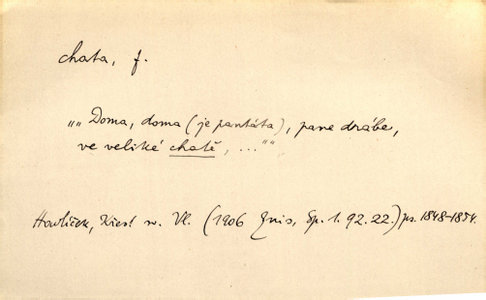 chata, f.
„„Doma, doma (je pantáta), pane drábe,
ve veliké chatě, ..."“
Havlíček, Křest sv. Vl. (1906 Quis, Sp. 1. 92. 22.) ps. 1848-1854.